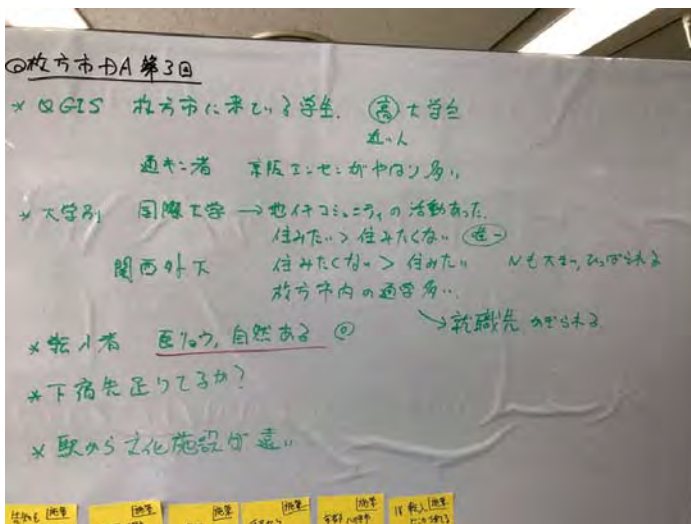 ◎枚方市DA 第3回
* QGIS 枚方市に来ている学生. 高 大学生
近い人
通キン者 京阪エンセンがやはり多い
* 大学別 国際大学 → 地イキコミュニティの活動あった.
住みたい > 住みたくない 唯一
関西外大 住みたくない > 住みたい Nも大きい, ひっぱられる
枚方市内の通学多い.
→就職先 かぎられる
* 転入者 医りょう, 自然ある ◎
* 下宿先足りてるか?
* 駅から文化施設が遠い
施策 施策 施策 施策 施策 施策